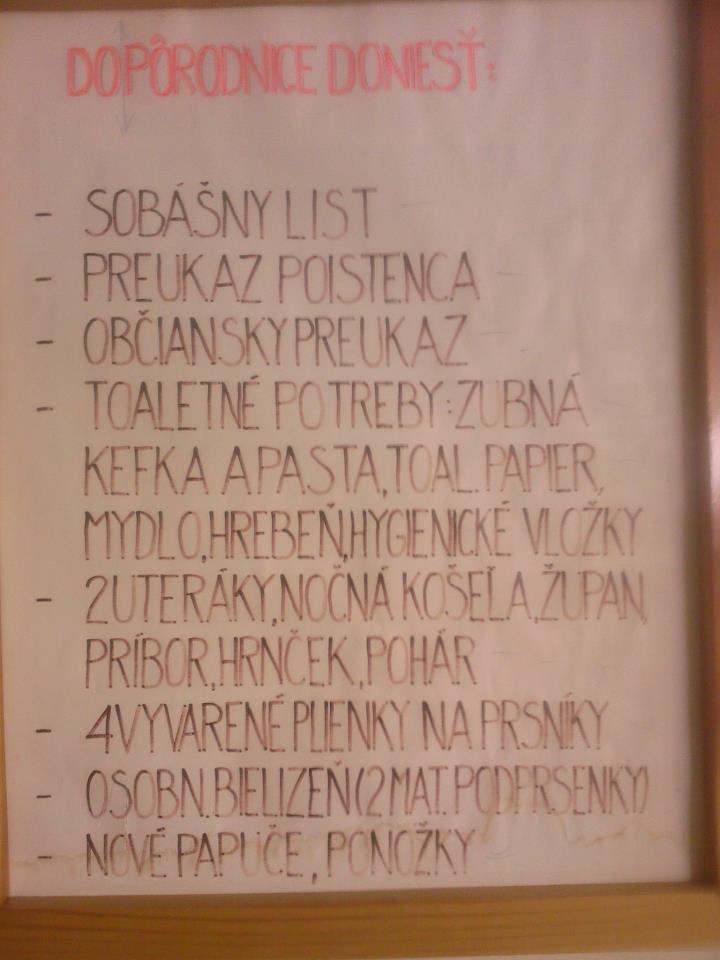 DO PÔRODNICE DONIESŤ:
- SOBÁŠNY LIST
- PREUKAZ POISTENCA
- OBČIANSKY PREUKAZ
- TOALETNÉ POTREBY: ZUBNÁ
KEFKA A PASTA, TOAL. PAPIER,
MYDLO, HREBEŇ, HYGIENICKÉ VLOŽKY
- 2 UTERÁKY, NOČNÁ KOŠEĽA, ŽUPAN,
PRÍBOR, HRNČEK, POHÁR
- 4 VYVARENÉ PLIENKY NA PRSNÍKY
- OSOBN. BIELIZEŇ (2 MAT. PODPRSENKY)
- NOVÉ PAPUČE, PONOŽKY